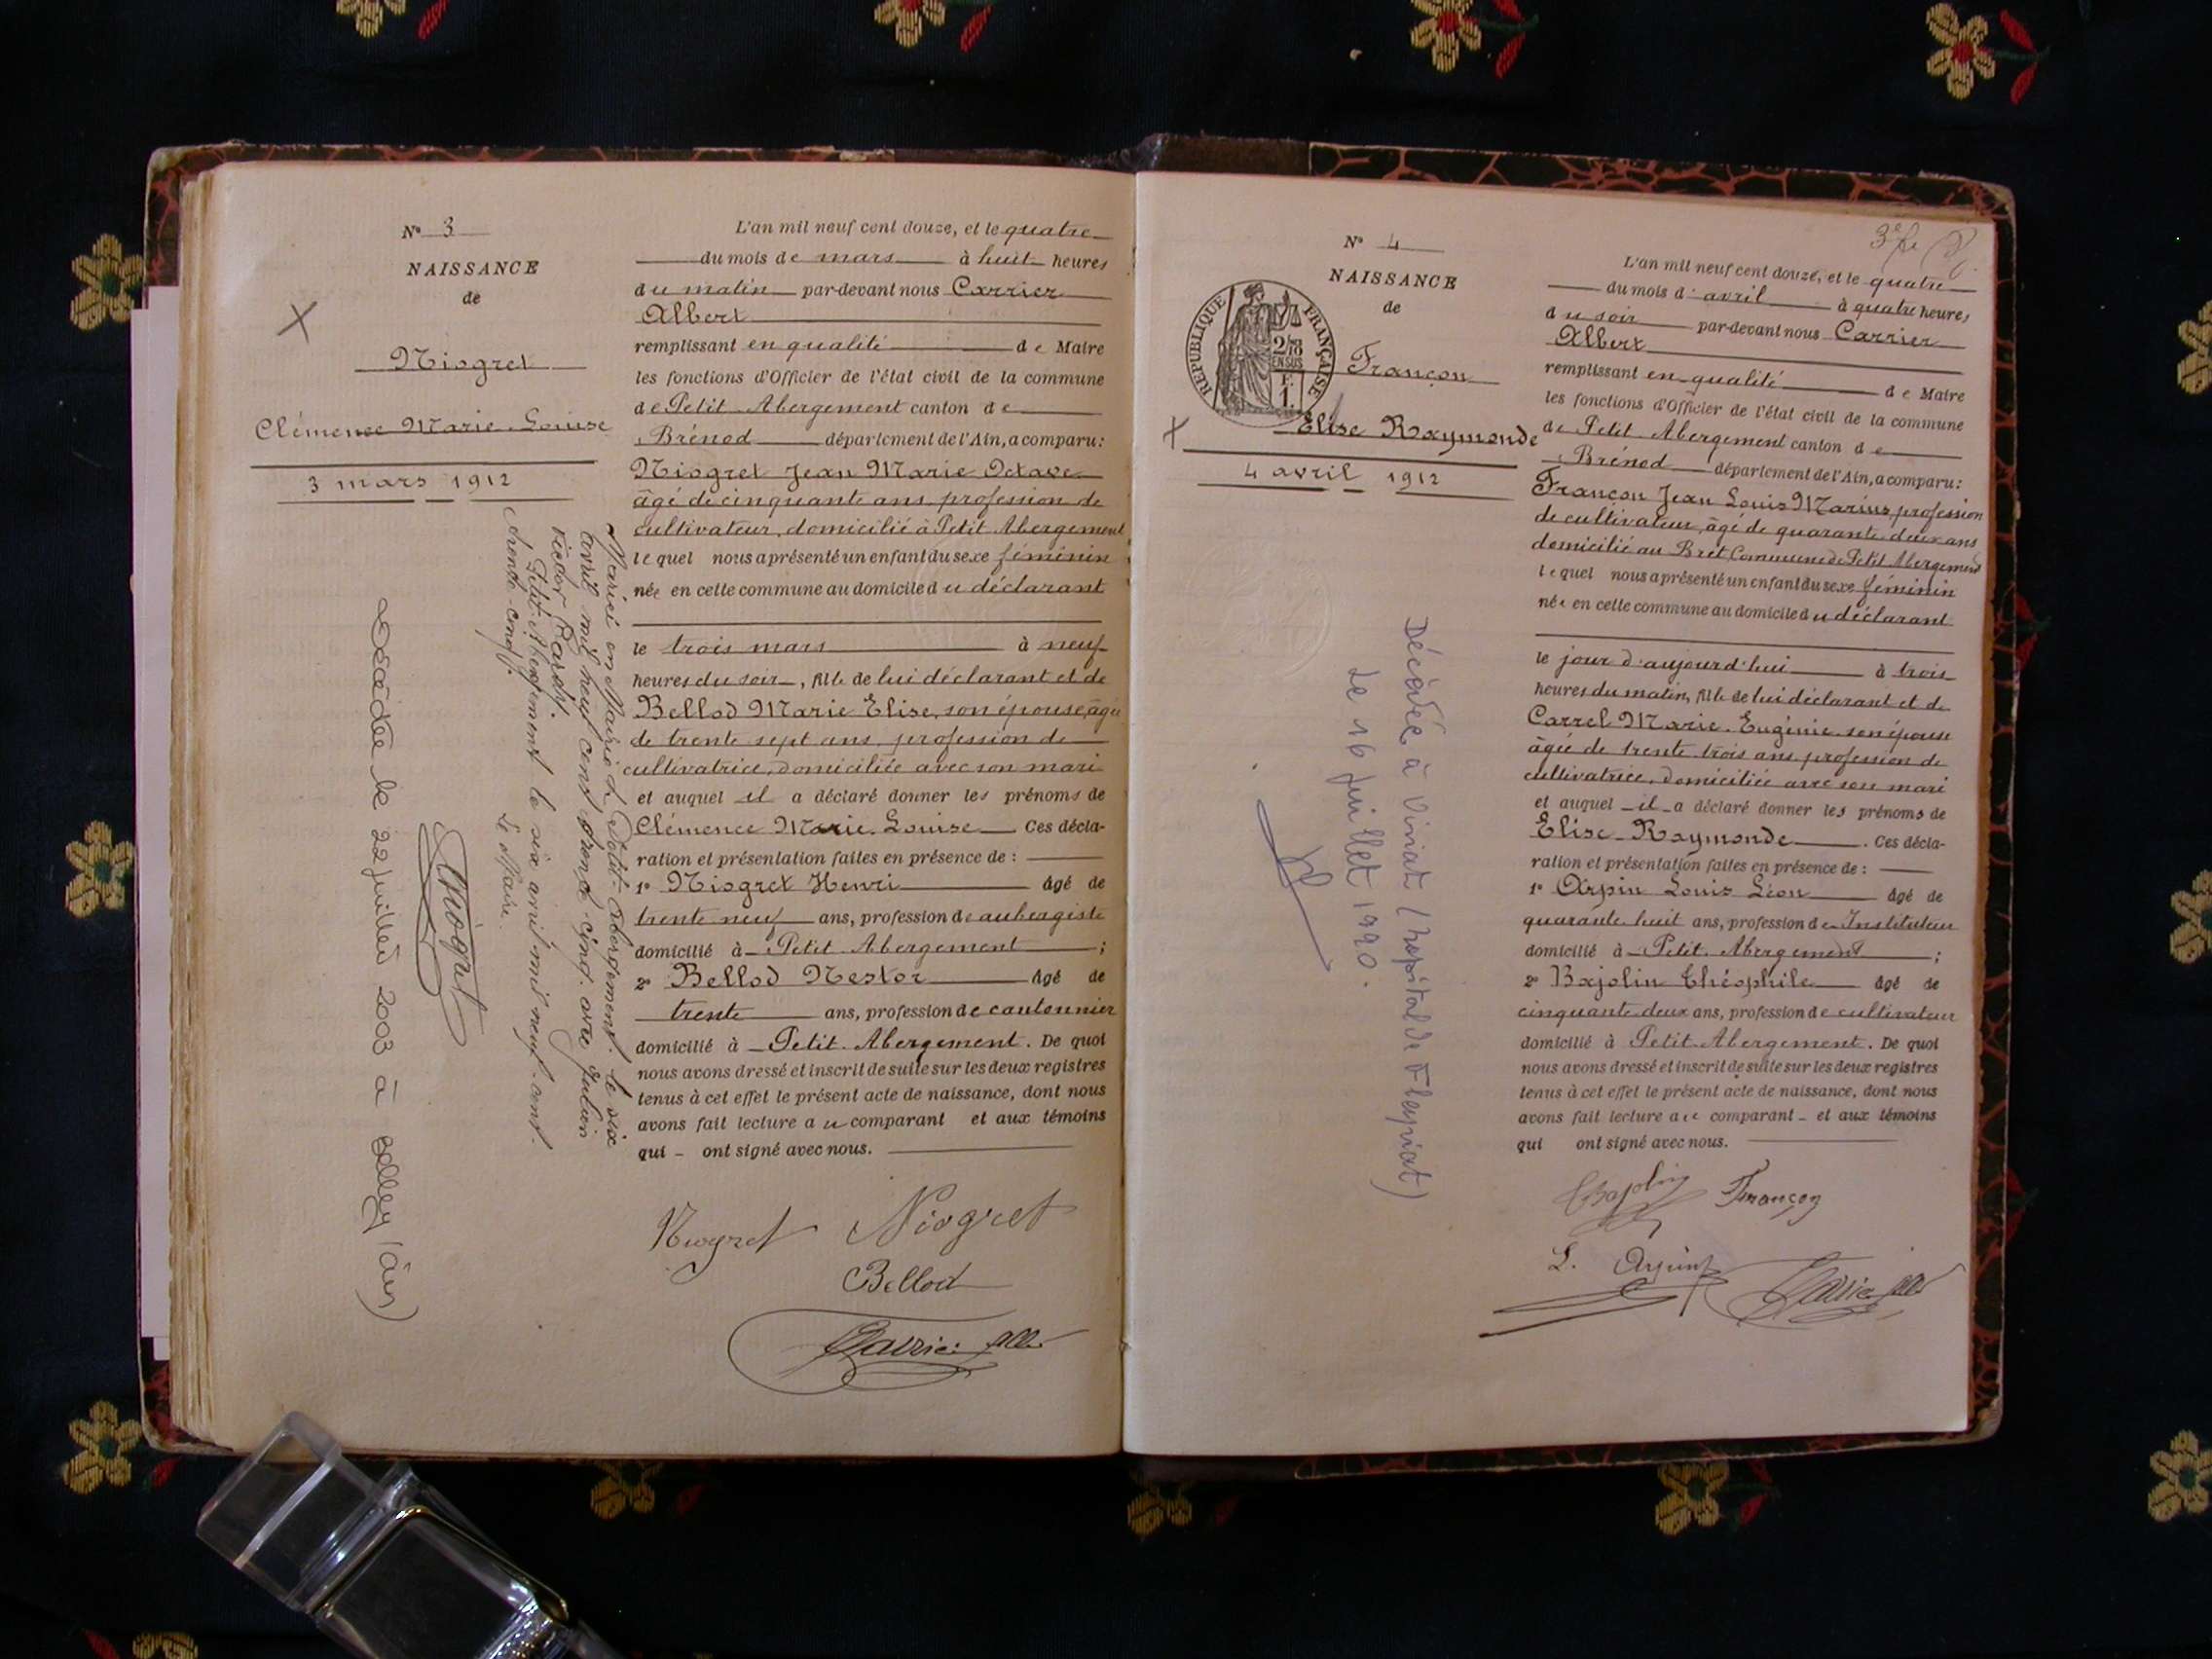 N° 3
NAISSANCE
de
Niogret
Clémence Marie-Louise
3 mars 1912
Mariée en Mairie de Petit-Abergement le six
avril mil neuf cent trente-cinq avec Julien
Victor
Petit-Abergement le six avril mil neuf-cent-
trente-cinq.
Le Maire.
Niogret
Décédée le 22 juillet 2003 à Belley (Ain)
L'an mil neuf cent douze, et le quatre
du mois de mars à huit heures
du matin par-devant nous Carrier
Albert
remplissant en qualité de Maire
les fonctions d'Officier de l'état civil de la commune
de Petit-Abergement canton de
Brénod département de l'Ain, a comparu:
Niogret Jean Marie Octave
âgé de cinquante ans profession de
cultivateur, domicilié à Petit-Abergement
lequel nous a présenté un enfant du sexe féminin
née en cette commune au domicile du déclarant
le trois mars à neuf
heures du soir, fille de lui déclarant et de
Bellod Marie Elise, son épouse, âgée
de trente sept ans, profession de
cultivatrice, domiciliée avec son mari
et auquel il a déclaré donner les prénoms de
Clémence Marie-Louise Ces décla-
ration et présentation faites en présence de :
1° Niogret Henri âgé de
trente neuf ans, profession de aubergiste
domicilié à Petit-Abergement ;
2° Bellod Nestor âgé de
trente ans, profession de cantonnier
domicilié à Petit-Abergement. De quoi
nous avons dressé et inscrit de suite sur les deux registres
tenus à cet effet le présent acte de naissance, dont nous
avons fait lecture au comparant et aux témoins
qui - ont signé avec nous.
Niogret Niogret
Bellod
Carrier Alb
3e fe
N° 4
NAISSANCE
de
REPUBLIQUE FRANÇAISE
2/10
EN SUS
F.
1.
Françon
Elise Raymonde
4 avril 1912
Décédée à Viriat (hopital de Fleyriat)
le 16 juillet 1990.
L'an mil neuf cent douze, et le quatre
du mois d'avril à quatre heures
du soir par-devant nous Carrier
Albert
remplissant en qualité de Maire
les fonctions d'Officier de l'état civil de la commune
de Petit-Abergement canton de
Brénod département de l'Ain, a comparu:
Françon Jean Louis Marius, profession
de cultivateur, âgé de quarante-deux ans
domicilié au Bret Commune de Petit Abergement
lequel nous a présenté un enfant du sexe féminin
née en cette commune au domicile du déclarant
le jour d'aujourd'hui à trois
heures du matin, fille de lui déclarant et de
Carrel Marie-Eugénie son épouse
âgée de trente-trois ans profession de
cultivatrice, domiciliée avec son mari
et auquel il a déclaré donner les prénoms de
Elise-Raymonde. Ces décla-
ration et présentation faites en présence de :
1° Arpin Louis Léon âgé de
quarante huit ans, profession de Instituteur
domicilié à Petit-Abergement ;
2° Bajolin Théophile âgé de
cinquante-deux ans, profession de cultivateur
domicilié à Petit-Abergement. De quoi
nous avons dressé et inscrit de suite sur les deux registres
tenus à cet effet le présent acte de naissance, dont nous
avons fait lecture au comparant - et aux témoins
qui ont signé avec nous.
Bajolin Françon
L. Arpin Carrier Alb